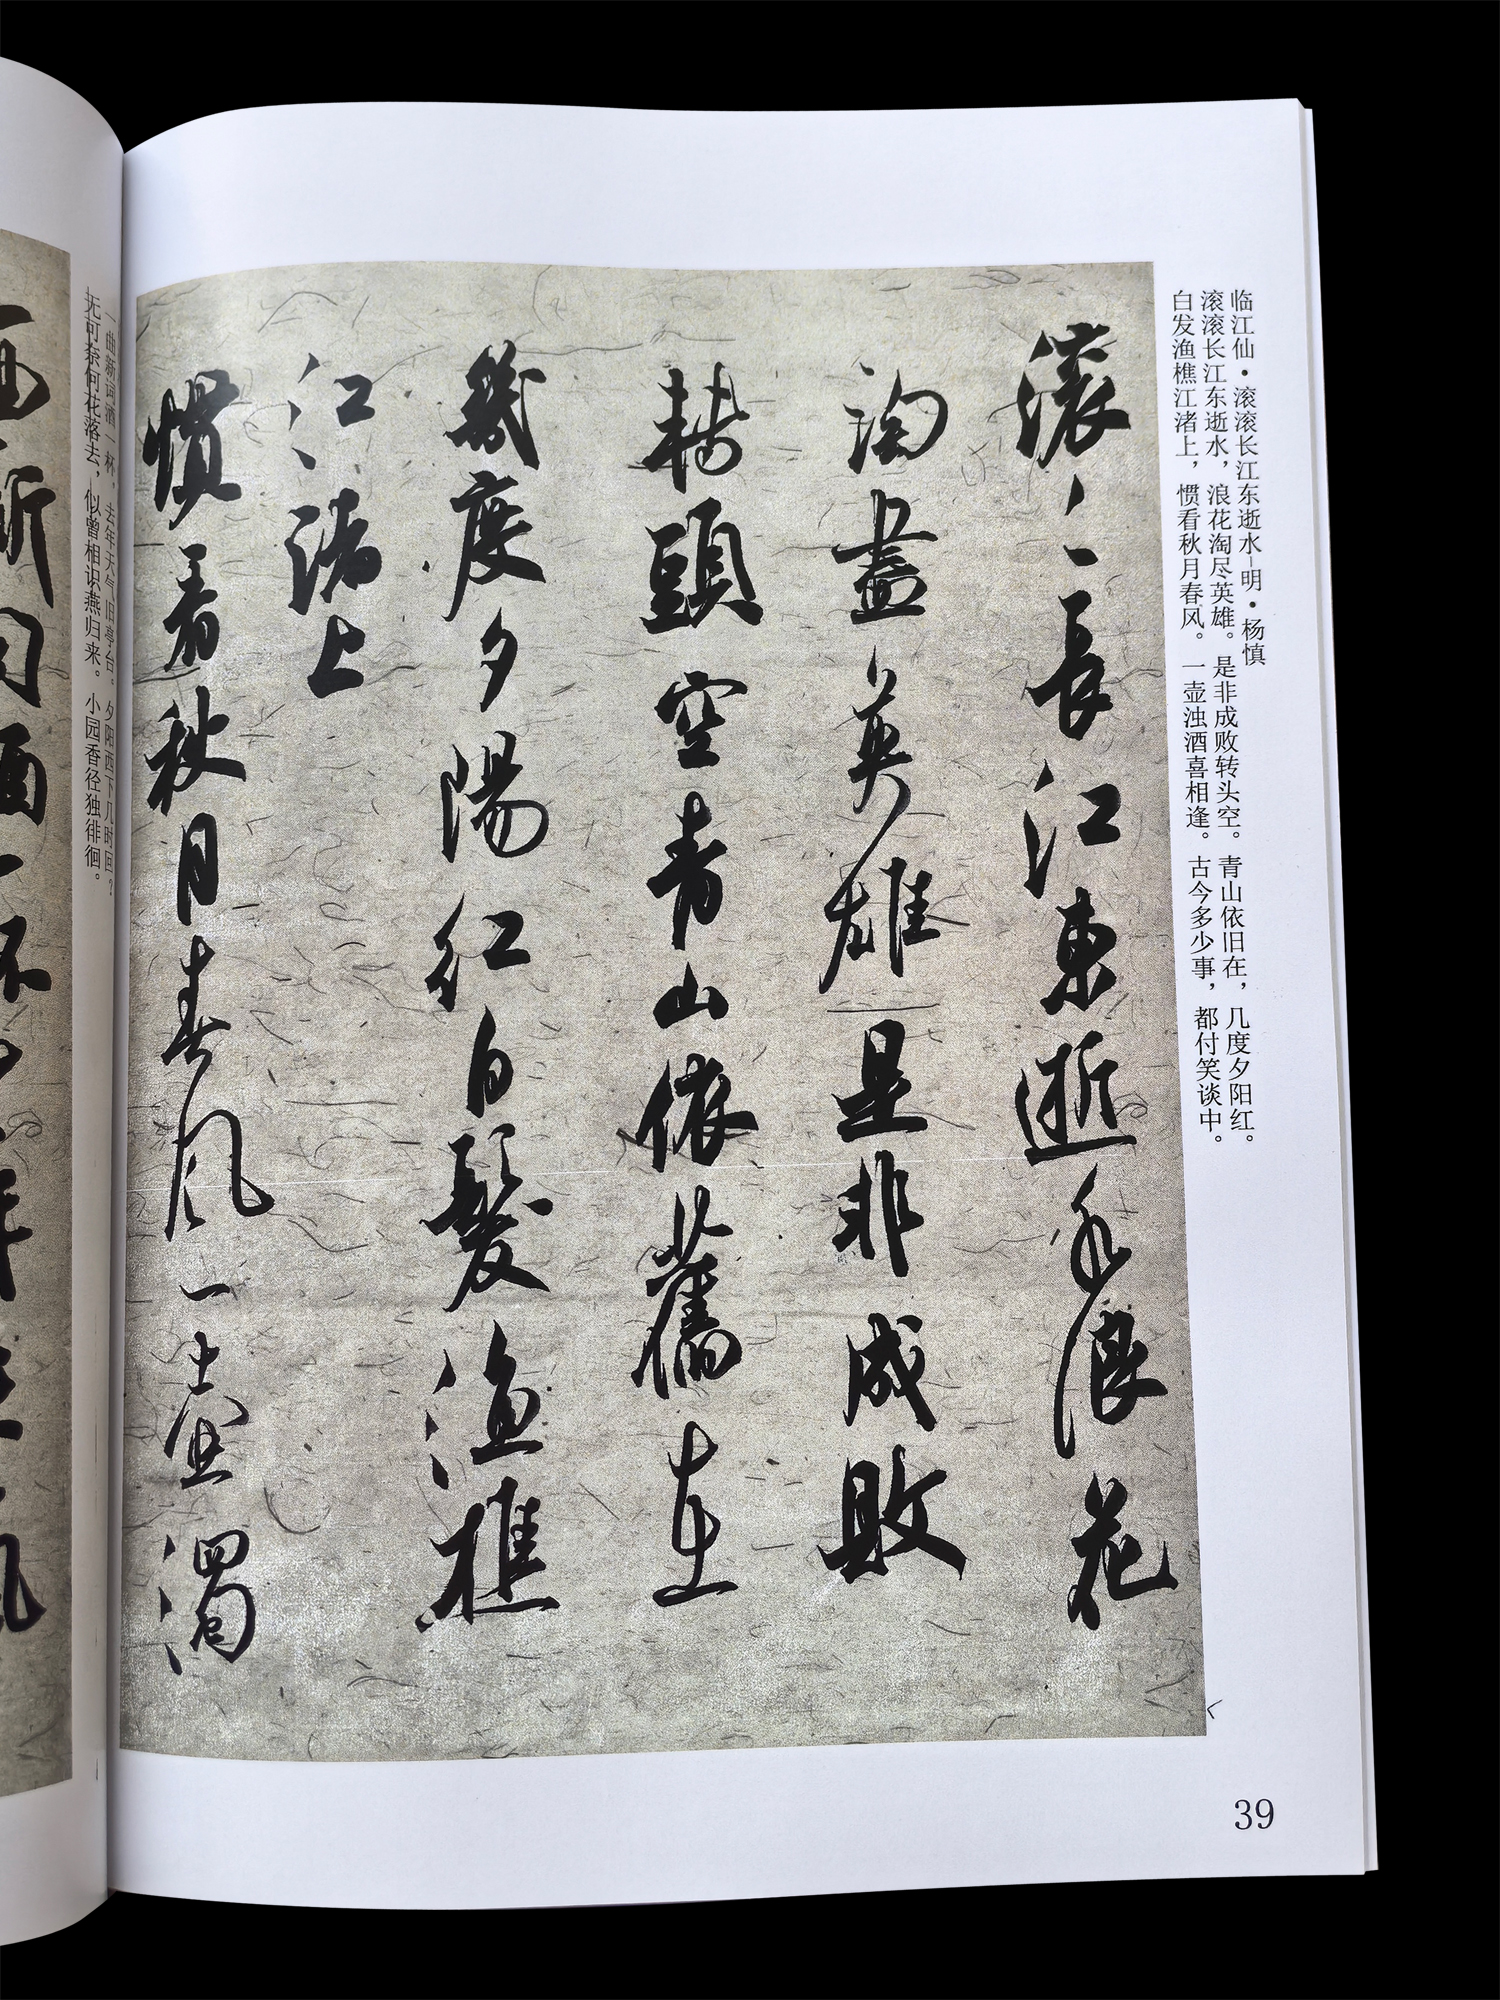 临江仙·滚滚长江东逝水-明·杨慎
滚滚长江东逝水，浪花淘尽英雄。是非成败转头空。青山依旧在，几度夕阳红。
白发渔樵江渚上，惯看秋月春风。一壶浊酒喜相逢。古今多少事，都付笑谈中。
滚〻長江東逝水浪花
淘盡英雄是非成敗
轉頭空青山依舊在
幾度夕陽紅白髮渔樵
江渚上
慣看秋月春风一壶濁
39
一曲新词酒一杯，去年天气旧亭台。夕阳西下几时回？
无可奈何花落去，似曾相识燕归来。小园香径独徘徊。